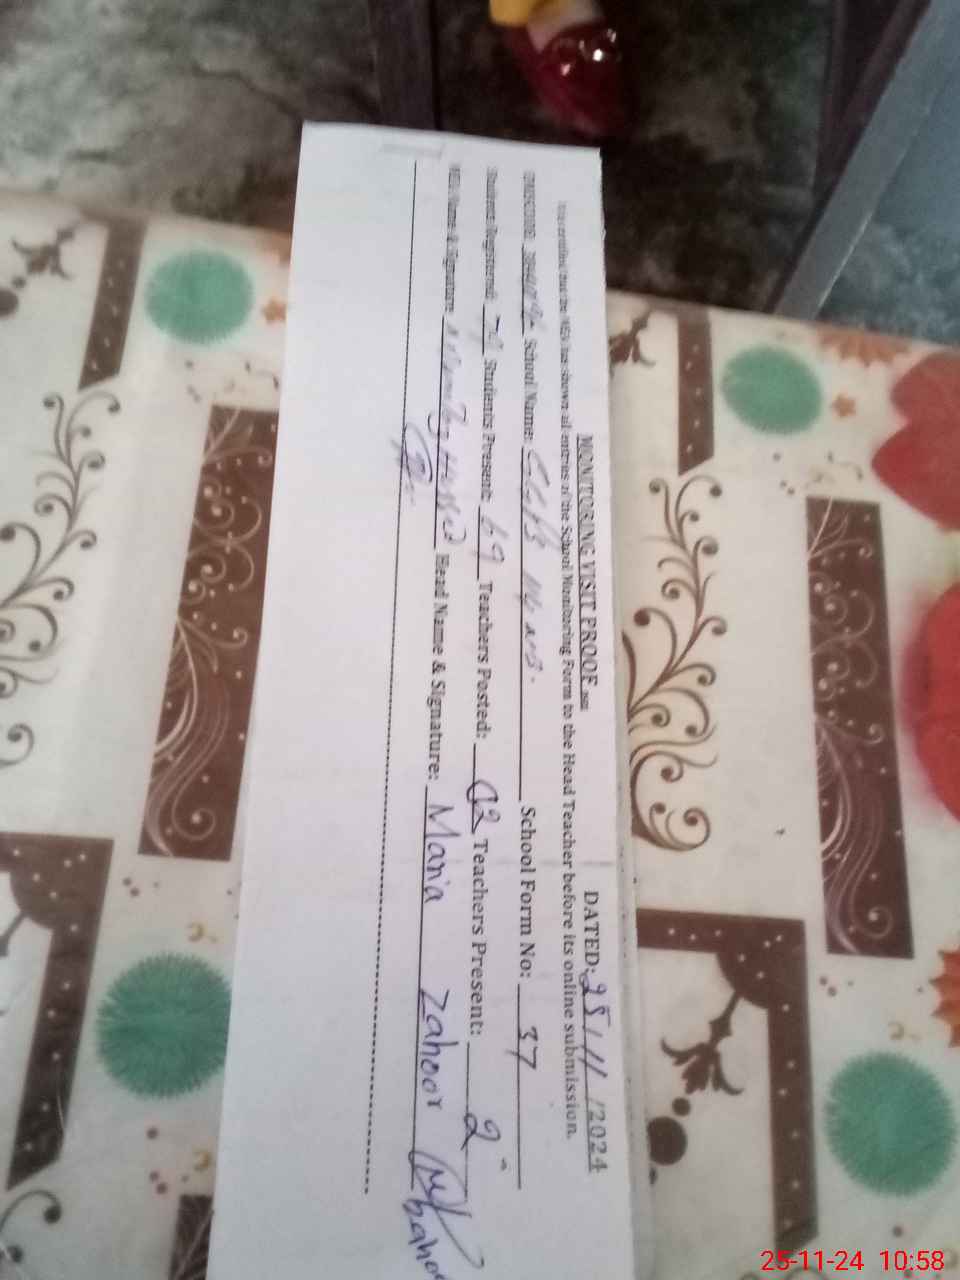 MONITORING VISIT PROOF DATED: 25/11/2024
that the MEA has shown all entries of the School Monitoring Form to the Head Teacher before its online submission.
School Name: School Form No: 37
Students Registered: Students Present: 69 Teachers Posted: 02 Teachers Present: 2
Name & Signature: Head Name & Signature: Maria Zahoor
25-11-24 10:58